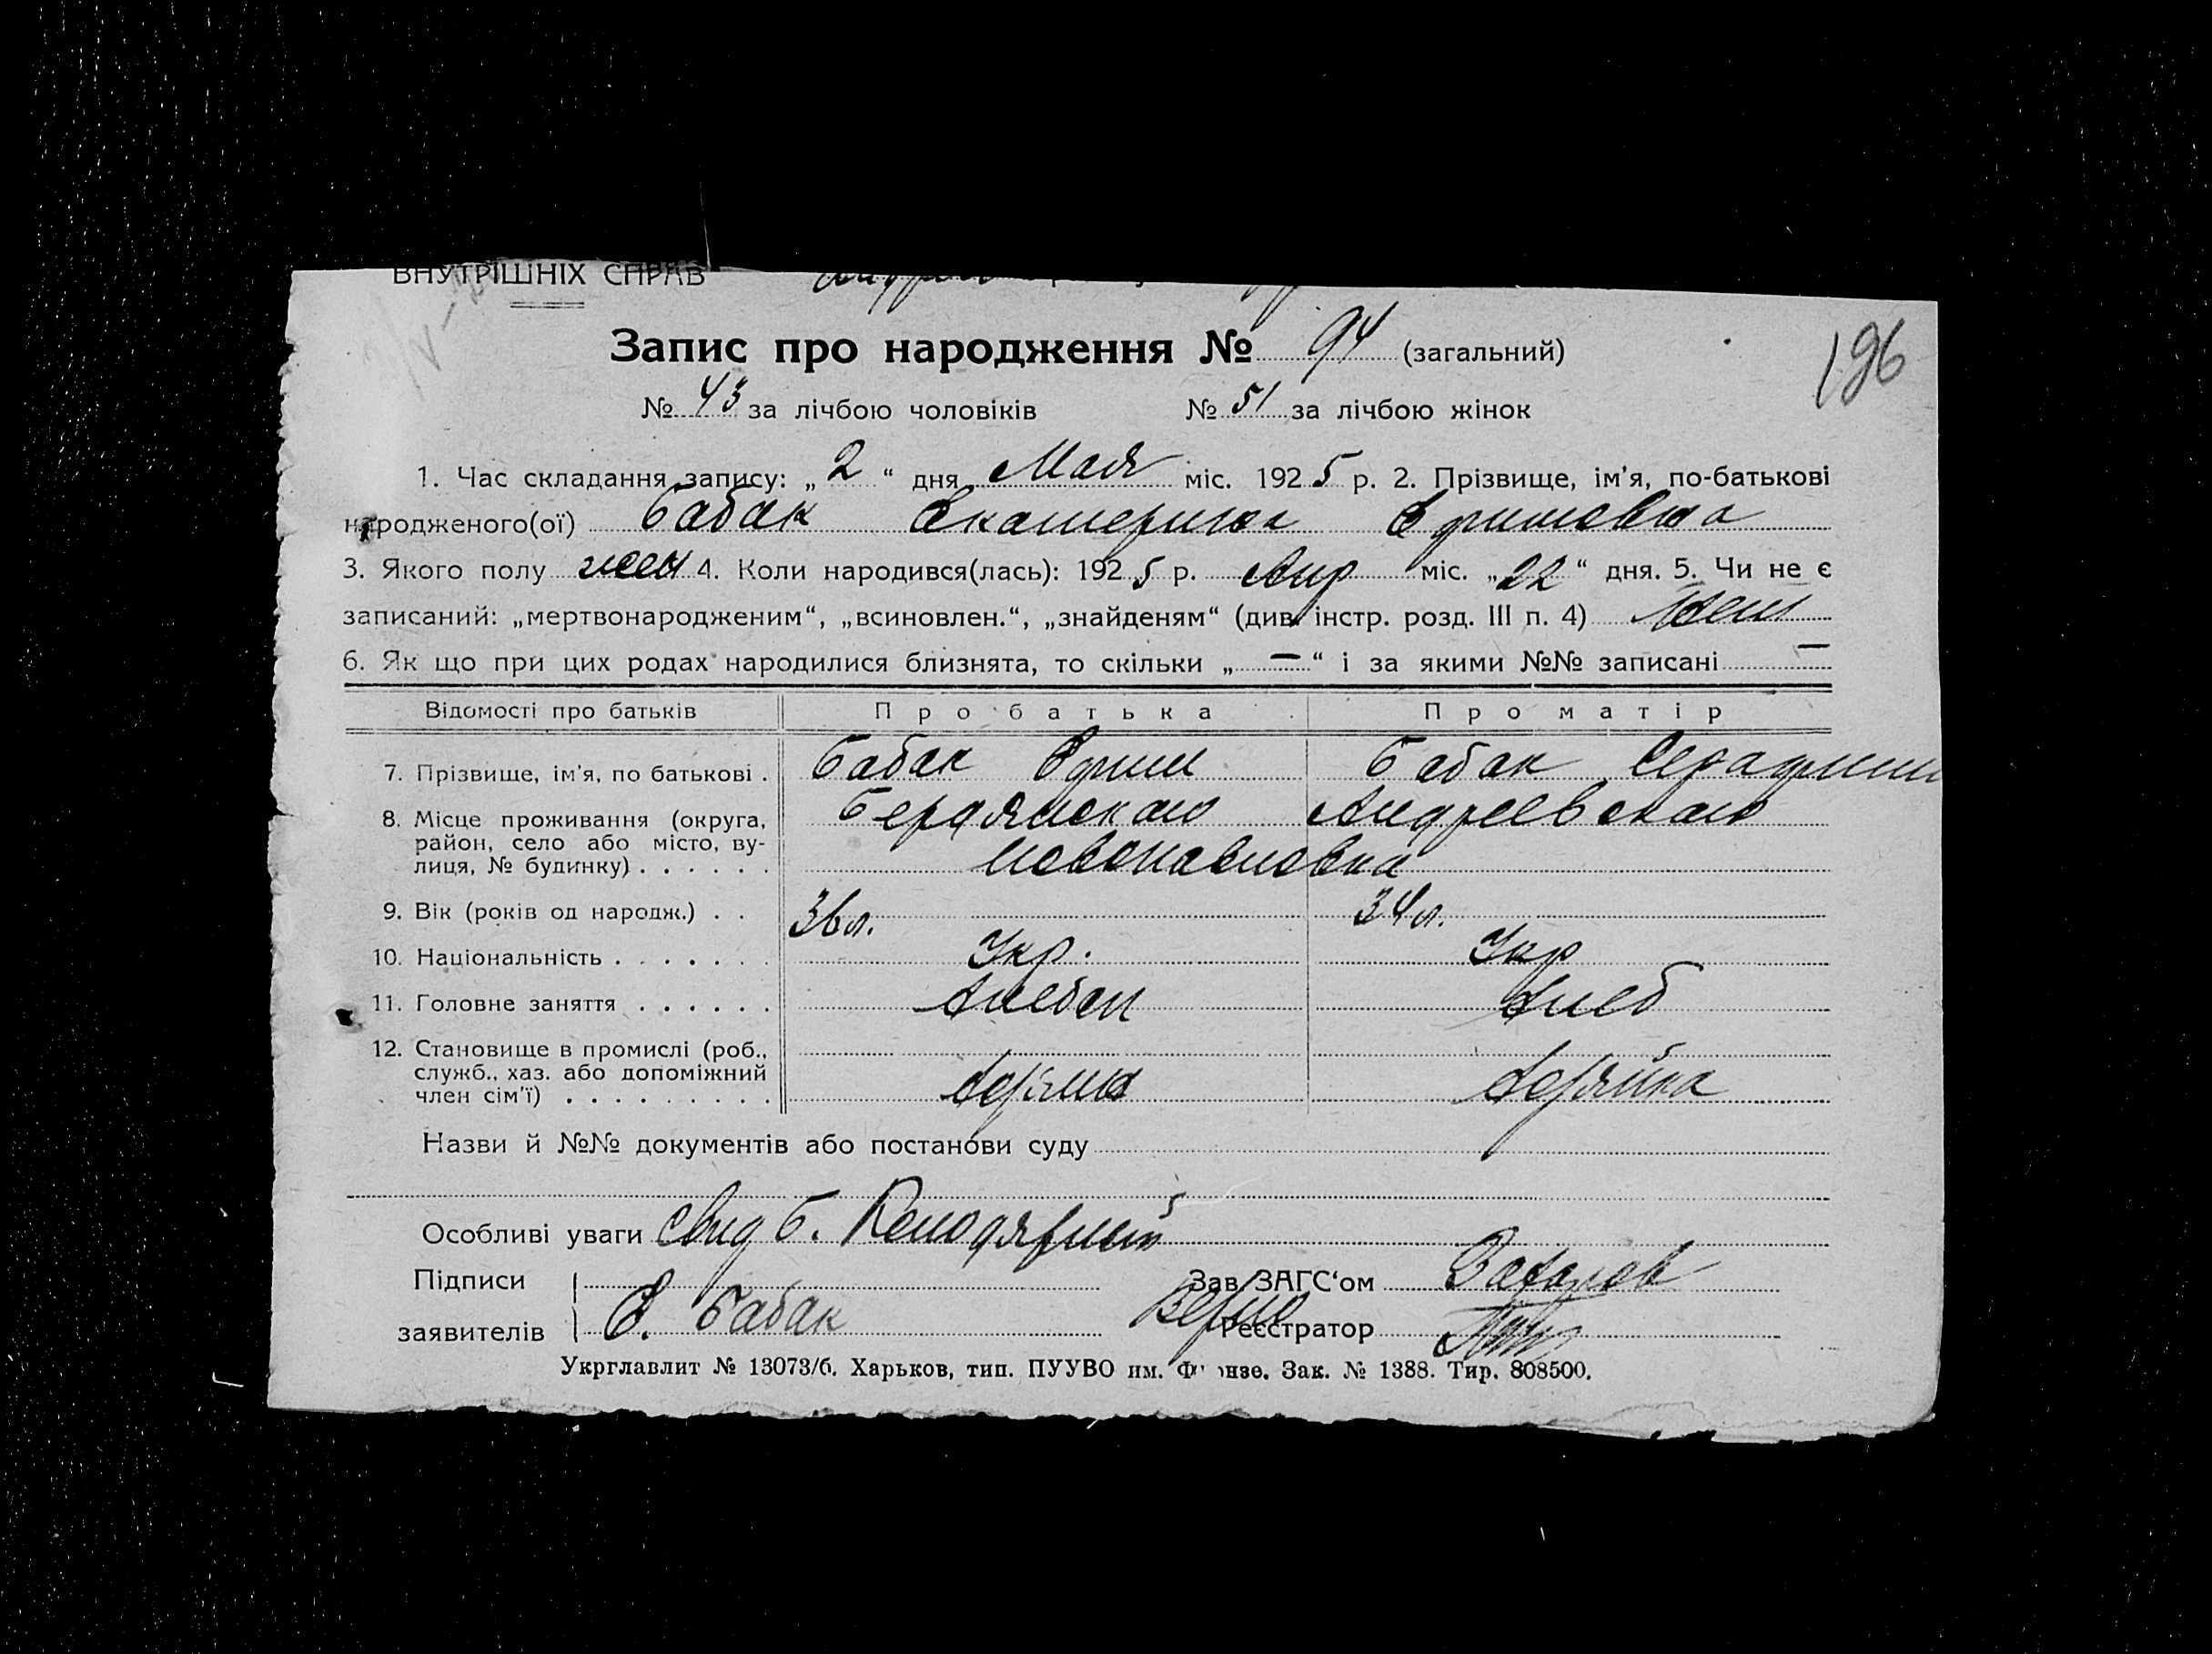 ВНУТРІШНІХ СПРАВ
Запис про народження № 94 (загальний)
196
№ 43 за лічбою чоловіків № 51 за лічбою жінок
1. Час складання запису: „2“ дня Мая міс. 1925 р. 2. Прізвище, ім'я, по-батькові
народженого(ої) Бабак Екатерина Ефимовна
3. Якого полу жен 4. Коли народився(лась): 1925 р. Апр міс. „22“ дня. 5. Чи не є
записаний: „мертвонародженим“, „всиновлен.“, „знайденям“ (див. інстр. розд. III п. 4) Нет
6. Як що при цих родах народилися близнята, то скільки „—“ і за якими №№ записані —
Відомості про батьків Про батька Про матір
7. Прізвище, ім'я, по батькові . Бабак Ефим Бабак Серафима
8. Місце проживання (округа, Бердянского Андреевского
район, село або місто, ву-
лиця, № будинку) . . . . . . Новопавловка
9. Вік (років од народж.) . . 36 л. 34 л.
10. Національність . . . . . . . Укр. Укр
11. Головне заняття . . . . . . Хлебоп Хлеб
12. Становище в промислі (роб.,
служб., хаз. або допоміжний Хозяин Хозяйка
член сім'ї) . . . . . . . . .
Назви й №№ документів або постанови суду
Особливі уваги свид б.
Підписи Зав. ЗАГС'ом Захаров
заявителів Е. Бабак Верно Реєстратор
Укрглавлит № 13073/б. Харьков, тип. ПУУВО им. Фрунзе. Зак. № 1388. Тир. 808500.